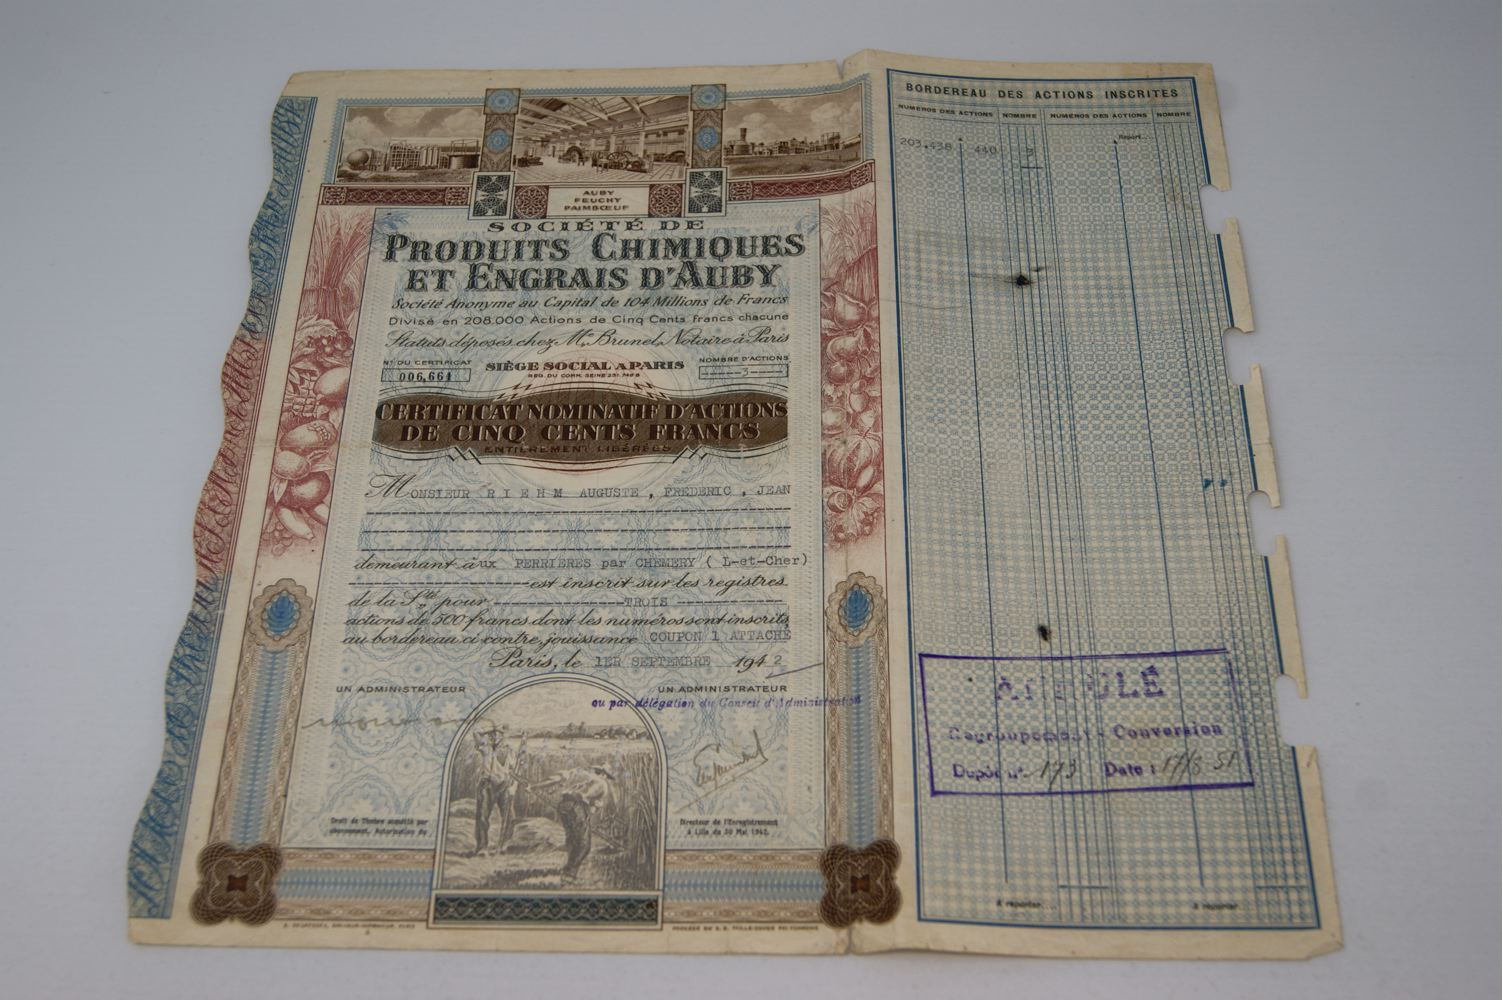 AUBY
FEUCHY
PAIMBŒUF
SOCIÉTÉ DE
PRODUITS CHIMIQUES
ET ENGRAIS D'AUBY
Société Anonyme au Capital de 104 Millions de Francs
Divisé en 208.000 Actions de Cinq Cents francs chacune
Statuts déposés chez Me Brunel, Notaire à Paris
No DU CERTIFICAT
006,661
SIÈGE SOCIAL A PARIS
REG. DU COMM. SEINE
NOMBRE D'ACTIONS
3
CERTIFICAT NOMINATIF D'ACTIONS
DE CINQ CENTS FRANCS
ENTIÈREMENT LIBÉRÉES
MONSIEUR RIEHM AUGUSTE, FREDERIC, JEAN
demeurant à ux PERRIERES par CHEMERY ( L-et-Cher)
est inscrit sur les registres
de la Sté pour TROIS
actions de 500 francs dont les numéros sont inscrits
au bordereau ci contre, jouissance COUPON 1 ATTACHÉ
Paris, le 1ER SEPTEMBRE 1942
UN ADMINISTRATEUR
UN ADMINISTRATEUR
ou par délégation du Conseil d'Administration
Droit de Timbre acquitté par
abonnement, Autorisation du
Directeur de l'Enregistrement
à Lille du 30 Mai 1942.
BORDEREAU DES ACTIONS INSCRITES
NUMÉROS DES ACTIONS NOMBRE NUMÉROS DES ACTIONS NOMBRE
Report
203.438 440 3
ANNULÉ
Regroupement - Conversion
Dépôt no 173 Date : 17/8 51
A reporter
A reporter